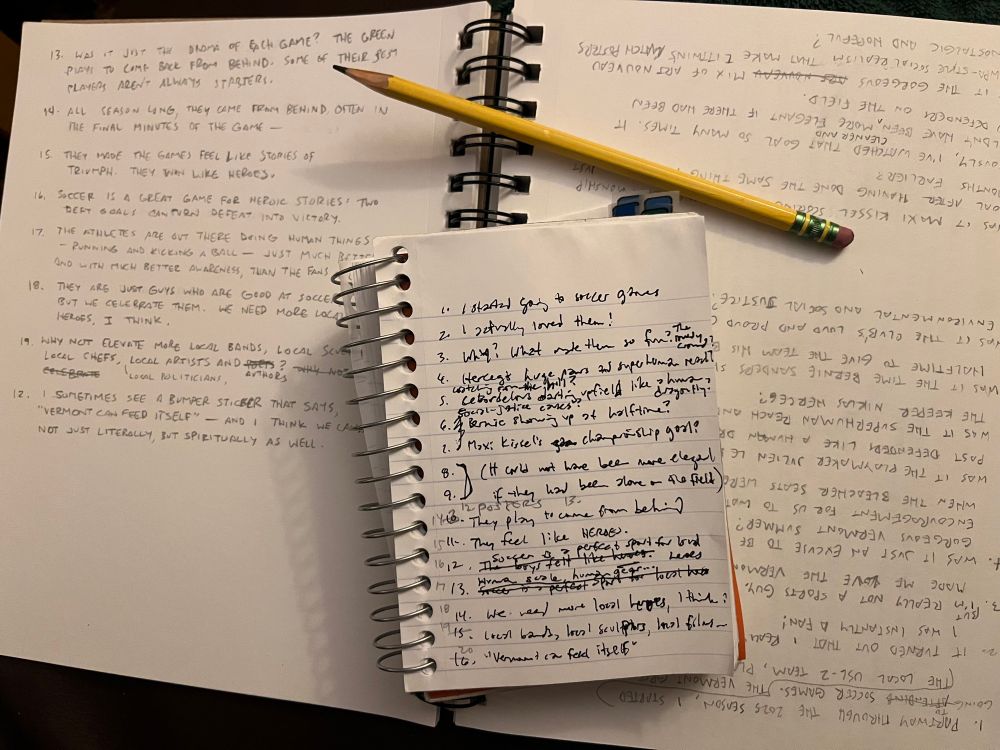 13. WAS IT JUST THE DRAMA OF EACH GAME? THE GREEN
PLAYS TO COME BACK FROM BEHIND. SOME OF THEIR BEST
PLAYERS AREN'T ALWAYS STARTERS.
14. ALL SEASON LONG, THEY CAME FROM BEHIND, OFTEN IN
THE FINAL MINUTES OF THE GAME —
15. THEY MADE THE GAMES FEEL LIKE STORIES OF
TRIUMPH. THEY WON LIKE HEROES.
16. SOCCER IS A GREAT GAME FOR HEROIC STORIES: TWO
DEFT GOALS CAN TURN DEFEAT INTO VICTORY.
17. THE ATHLETES ARE OUT THERE DOING HUMAN THINGS
— RUNNING AND KICKING A BALL — JUST MUCH
AND WITH MUCH BETTER AWARENESS, THAN THE FANS
18. THEY ARE JUST GUYS WHO ARE GOOD AT
BUT WE CELEBRATE THEM. WE NEED MORE
HEROES, I THINK.
19. WHY NOT ELEVATE MORE LOCAL BANDS, LOCAL
LOCAL CHEFS, LOCAL ARTISTS AND POETS? WHY NOT
CELEBRATE LOCAL POLITICIANS, AUTHORS
12. I SOMETIMES SEE A BUMPER STICKER THAT SAYS,
"VERMONT CAN FEED ITSELF" — AND I THINK WE
NOT JUST LITERALLY, BUT SPIRITUALLY AS WELL.
1. I started going to soccer games
2. I actually loved them!
3. Why? What made them so fun? The
4. Herceg's huge paws and superhuman reach?
5. Lebordelin's darting upfield like a human
dragonfly?
social justice causes
6. Bernie showing up at halftime?
7. Maxi Kissel's championship goal?
8. (It could not have been more elegant
9. if they had been alone on the field)
12 POSTERS 13.
They play to come from behind
15 11. They feel like HEROES.
Soccer is a perfect sport for local
16 12. The boys felt like heroes. heroes
Human scale, human gear...
17 13. Soccer is a perfect sport for local
18 14. We need more local heroes, I think:
19 15. Local bands, local sculptors, local films—
20 16. "Vermont can feed itself"
1. PARTWAY THROUGH THE 2025 SEASON, I STARTED
GOING TO ATTENDING SOCCER GAMES. (THE VERMONT
(THE LOCAL USL-2 TEAM,
2. IT TURNED OUT THAT I
I WAS INSTANTLY A FAN!
3. I'M REALLY NOT A SPORTS GUY,
BUT
MADE ME LOVE THE
4. WAS IT JUST AN EXCUSE TO BE
GORGEOUS VERMONT SUMMER?
ENCOURAGEMENT FOR US TO
WHEN THE BLEACHER SEATS WERE
WAS IT THE PLAYMAKER JULIEN LE
PAST DEFENDERS LIKE A HUMAN
WAS IT THE SUPERHUMAN REACH AND
THE KEEPER NIKLAS HERCEG?
WAS IT THE TIME BERNIE SANDERS
HALFTIME TO GIVE THE TEAM HIS
WAS IT THE CLUB'S LOUD AND PROUD
ENVIRONMENTAL AND SOCIAL JUSTICE?
WAS IT MAXI KISSEL SCORING
GOAL AFTER HAVING DONE THE SAME THING JUST
MONTHS EARLIER?
I'VE WATCHED THAT GOAL SO MANY TIMES. IT
CLEANER AND
HAVE BEEN MORE ELEGANT IF THERE HAD BEEN
DEFENDERS ON THE FIELD.
IT THE GORGEOUS MIX OF ART NOUVEAU
WPA-STYLE SOCIAL REALISM THAT MAKE MATCH POSTERS
NOSTALGIC AND HOPEFUL?